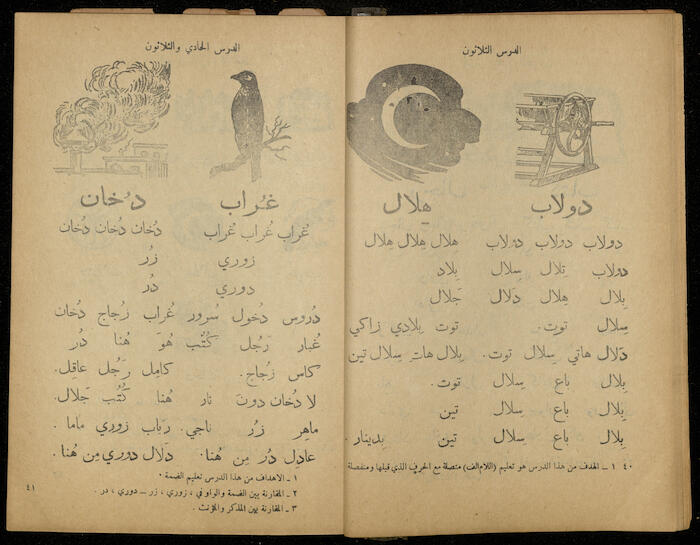 الدرس الثلاثون
دولاب هِلال
دولاب دولاب دولاب هلال هلال هلال
دولاب تِلال سِلال بِلاد
بِلال هِلال دَلال جَلال
سِلال توت. توت بِلادي زاكي
دَلال هاتي سِلال توت. بِلال هات سِلال تين
بِلال باع سِلال توت.
بِلال باع سِلال تين
بِلال باع سِلال تين بدينار.
٤٠ ١ - الهدف من هذا الدرس هو تعليم (اللام الف) متصلة مع الحرف الذي قبلها ومنفصلة
الدرس الحادي والثلاثون
غُراب دُخان
غُراب غُراب غُراب دُخان دُخان دُخان
زوري زُر
دوري دُر
دُروس دُخول سُرور غُراب زُجاج دُخان
غُبار رَجُل كُتُب هُوَ هُنا دُر
كاس زُجاج. كامِل رَجُل عاقِل.
لا دُخان دون نار هُنا كُتُب جَلال.
ماهِر زُر ناجي. رَباب زوري ماما.
عادِل دُر مِن هُنا. دَلال دوري مِن هُنا.
١ - الاهداف من هذا الدرس تعليم الضمة.
٢ - المقارنة بين الضمة والواو في ، زوري ، زر - دوري ، در .
٣ - المقارنة بين المذكر والمؤنث .
٤١